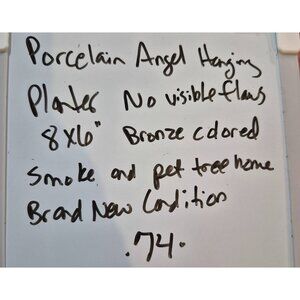 Porcelain Angel Hanging
Planter No visible flaws
8x6" Bronze colored
smoke and pet free home
Brand New Condition
.74.